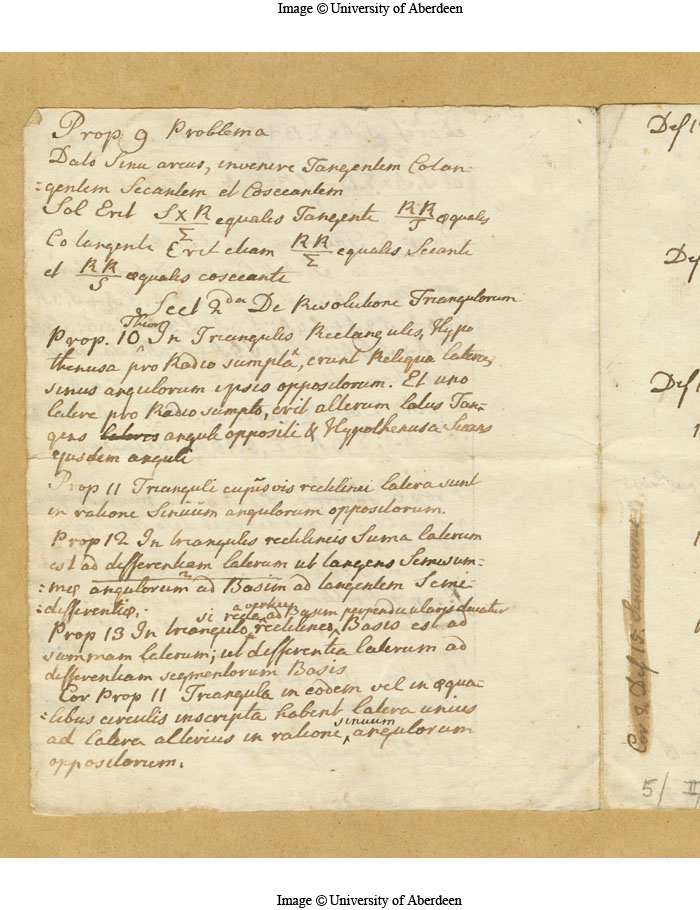 Image © University of Aberdeen
Prop 9 Problema
Dato Sinu arcus, invenire Tangentem Cotan-
:gentem Secantem et Cosecantem
Sol Erit S×R/Σ equalis Tangenti RR/S æqualis
Co tangenti Erit etiam RR/Σ equalis Secanti
et RR/S æqualis cosecante
Sect 2da De Resolutione Triangulorum
Theor
Prop. 10 In Triangulis Rectangulis, Hypo
thenusa pro Radio sumptâ, erunt Reliqua latera,
sinus angulorum ipsis oppositorum. Et uno
latere pro Radio sumpto, erit alterum latus Tan-
gens lateris anguli oppositi & Hypothenusa Secans
ejusdem anguli
Prop 11 Trianguli cujusvis rectilinei latera sunt
in ratione Sinuum angulorum oppositorum.
Prop 12 In triangulis rectilineis Suma laterum
est ad differentiam laterum ut tangens Semisum-
:mæ angulorum ad Basim ad tangentem Seme-
:differentiæ.
si recta ad Basim perpendicularis ducatur
Prop 13 In triangulo rectilineo Basis est ad
summam laterum; ut differentia laterum ad
differentiam segmentorum Basis
Cor Prop 11 Triangula in eodem vel in æqua-
:libus circulis inscripta habent latera unius
sinuum
ad latera alterius in ratione, angulorum
oppositorum.
Def 1
Def
Def 1
1
1
Cor 2 Def 15.
5/ II
Image © University of Aberdeen